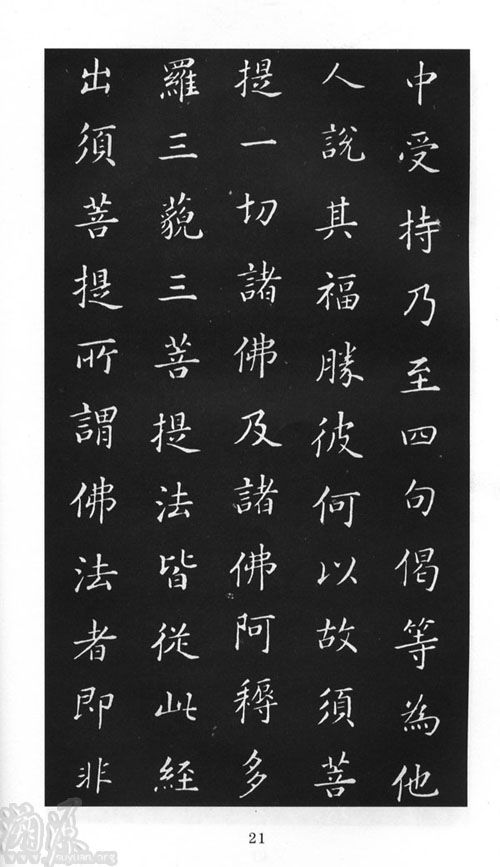 中受持乃至四句偈等為他
人說其福勝彼何以故須菩
提一切諸佛及諸佛阿耨多
羅三藐三菩提法皆從此經
出須菩提所謂佛法者即非
21
溯源
www.suyuan.org